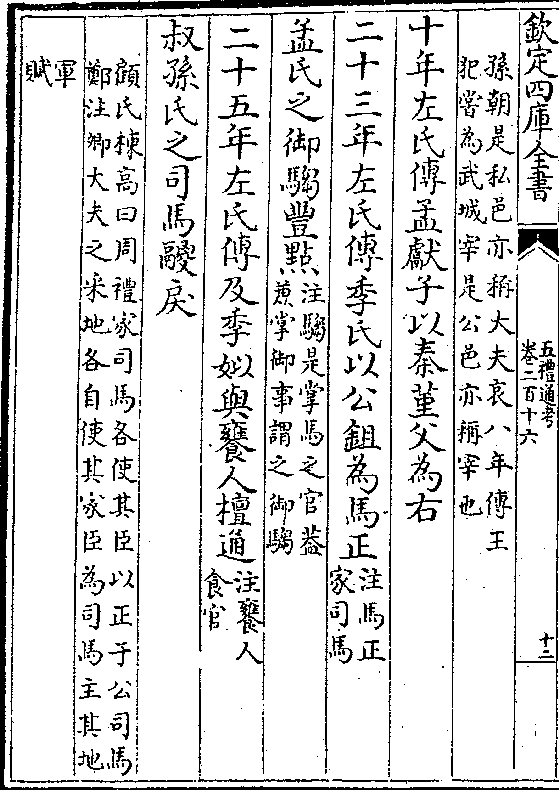 欽定四庫全書
五禮通考
卷二百十六
十二
孫朝是私邑亦稱大夫哀八年傳王
犯嘗為武城宰是公邑亦稱宰也
十年左氏傳孟獻子以秦堇父為右
二十三年左氏傳季氏以公鉏為馬正
注馬正
家司馬
孟氏之御騶豐點
注騶是掌馬之官蓋
兼掌御事謂之御騶
二十五年左氏傳及季姒與饔人檀通
注饔人
食官
叔孫氏之司馬鬷戾
顧氏棟高曰周禮家司馬各使其臣以正于公司馬
鄭注卿大夫之采地各自使其家臣為司馬主其地
軍
賦